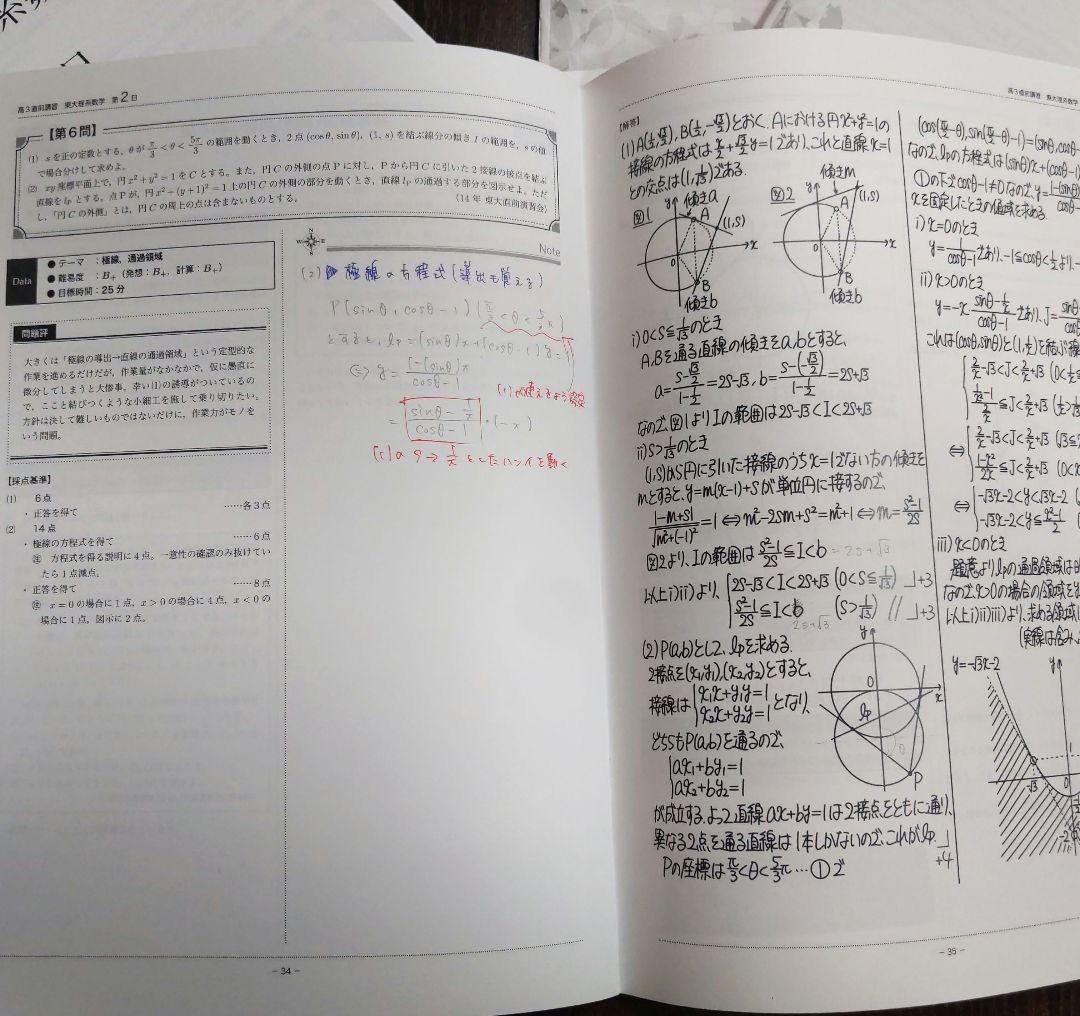 高3直前講習 東大理系数学 第2日
【第6問】
(1) sを正の定数とする。θが π/3 < θ < 5π/3 の範囲を動くとき,2点(cosθ, sinθ), (1, s)を結ぶ線分の傾きIの範囲を,sの値
で場合分けして求めよ。
(2) xy座標平面上で,円x²+y²=1をCとする。また,円Cの外側の点Pに対し,Pから円Cに引いた2接線の接点を結ぶ
直線をlPとする。点Pが,円x²+(y+1)²=1上の円Cの外側の部分を動くとき,直線lPの通過する部分を図示せよ。ただ
し,「円Cの外側」とは,円Cの周上の点は含まないものとする。
(14年 東大直前演習会)
Data
●テーマ :極線,通過領域
●難易度 :B+(発想:B+,計算:B+)
●目標時間:25分
問題評
大きくは「極線の導出→直線の通過領域」という定型的な
作業を進めるだけだが,作業量がなかなかで,仮に愚直に
微分してしまうと大惨事。幸い(1)の誘導がついているの
で,ここと結びつくような小細工を施して乗り切りたい。
方針は決して難しいものではないだけに,作業力がモノを
いう問題。
【採点基準】
(1) 6点
・正答を得て ……各3点
(2) 14点
・極線の方程式を得て ……6点
㊟ 方程式を得る説明に4点。一意性の確認のみ抜けてい
たら1点減点。
・正答を得て ……8点
㊟ x=0の場合に1点,x>0の場合に4点,x<0の
場合に1点,図示に2点。
N
W
E
S
Note
(2) 極線の方程式(導出も覚える)
P(sinθ, cosθ-1) (π/3<θ<5/3π)
とすると, lp=(sinθ)x+(cosθ-1)y=1
⇔ y= (1-(sinθ)x)/(cosθ-1)
(1)が使えるよう
= (sinθ-1/x)/(cosθ-1) ・(-x)
(1)のS→1/x としたハンイを動く
- 34 -
高3直前講習 東大理系数学
【解答】
(1) A(1/2, √3/2), B(1/2, -√3/2)とおく. Aにおける円x²+y²=1の
接線の方程式は x/2+√3/2 y=1であり、これと直線x=1
との交点は(1, 1/√3)である.
図1 傾きa A (1,S) x y O B 傾きb
図2 傾きm A (1,S) x y O B 傾きb
i) 0<S≦1/√3のとき
A,Bを通る直線の傾きをa,bとすると
a=(S-(√3/2))/(1-1/2)=2S-√3, b=(S-(-√3/2))/(1-1/2)=2S+√3
なので、図1よりIの範囲は2S-√3<I<2S+√3
ii) S>1/√3のとき
(1,S)から円に引いた接線のうちx=1でない方の傾きを
mとすると、y=m(x-1)+Sが単位円に接するので、
|-m+S|/√(m²+(-1)²)=1⇔m²-2Sm+S²=m²+1⇔m=(S²-1)/2S
図2より、Iの範囲は(S²-1)/2S≦I<b =2S+√3
以上i)ii)より、{2S-√3<I<2S+√3 (0<S≦1/√3) 」+3
(S²-1)/2S≦I<b (S>1/√3) // 」+3
2S+√3
(2) P(a,b)として、lpを求める.
2接点を(x₁,y₁),(x₂,y₂)とすると、
接線は{x₁x+y₁y=1
x₂x+y₂y=1 となり、
y O x lp θ P
どちらもP(a,b)を通るので、
{ax₁+by₁=1
ax₂+by₂=1
が成立する.よって直線ax+by=1は2接点をともに通り、
異なる2点を通る直線は1本しかないので、これがlp.」
+4
Pの座標はπ/3<θ<5/3π…①で
(cos(π/2-θ), sin(π/2-θ)-1)=(sinθ, cosθ-
なので、lpの方程式は(sinθ)x+(cosθ-1)
①の下でcosθ-1≠0なので、y=(1-(sinθ)
cosθ-
xを固定したときの値域を求める.
i) x=0のとき
y=1/(cosθ-1)であり、-1≦cosθ<1/2より、-
ii) x>0のとき
y=-x・(sinθ-1/x)/(cosθ-1)であり、J=
これは(cosθ,sinθ)と(1,1/x)を結ぶ線
{2/x-√3<J<2/x+√3 (0<1/x≦
≦J<2/x+√3 (1/x>
⇔{2/x-√3<J<2/x+√3 (√3≦
(1-x²)/2x≦J<2/x+√3 (0<x
⇔{-√3x-2<y<√3x-2 (
-√3x-2<y≦(x²-1)/2 (
iii) x<0のとき
題意よりlpの通過領域は
なので、x>0の場合の領域を
以上i)ii)iii)より、求める領域は
(実線は含み、
y=-√3x-2
y
-√3
O
1
-2
- 35 -